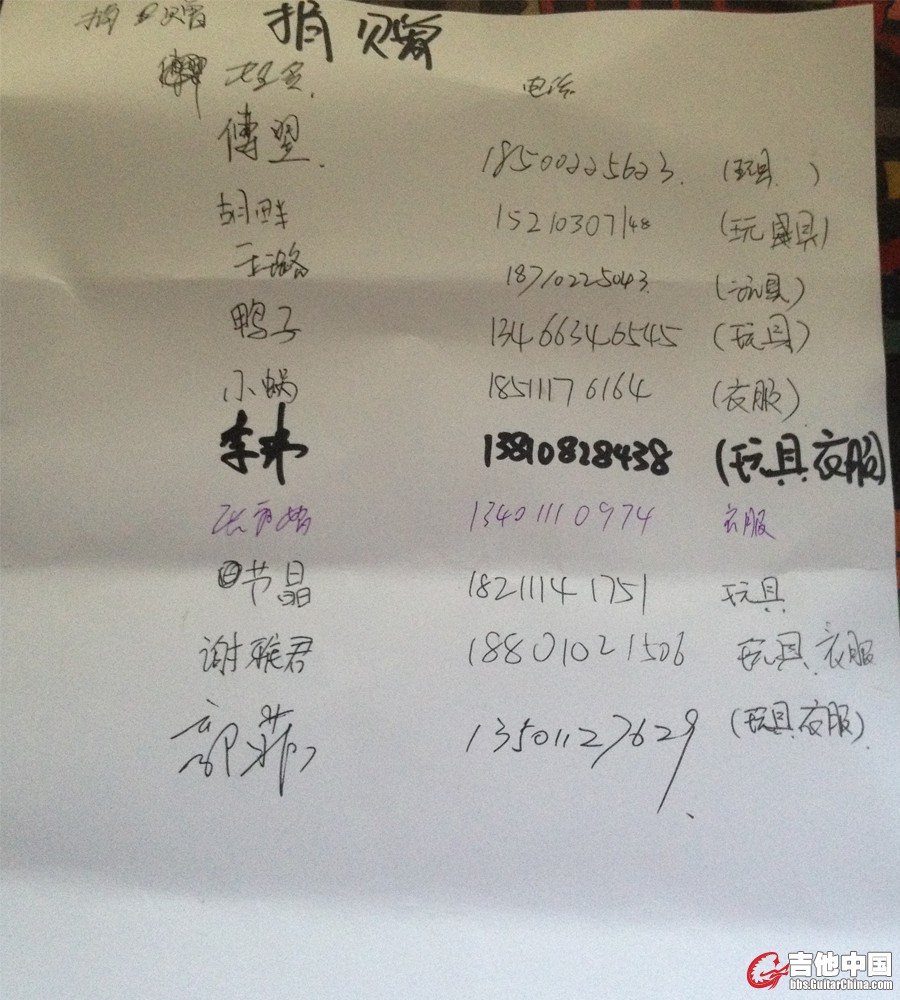 捐 贝赠 捐 贝赠
电话
傅翌 18500225623 (玩具)
胡畔 15210307148 (玩具)
王璐 18710225043 (玩具)
鸭子 13466346545 (玩具)
小蜗 18511176164 (衣服)
李玮 13810828438 (玩具衣服)
13401110974 衣服
节晶 18211141751 玩具
谢雅君 18801021506 玩具、衣服
郭菲 13501127629 (玩具衣服)
吉他中国
bbs.GuitarChina.com